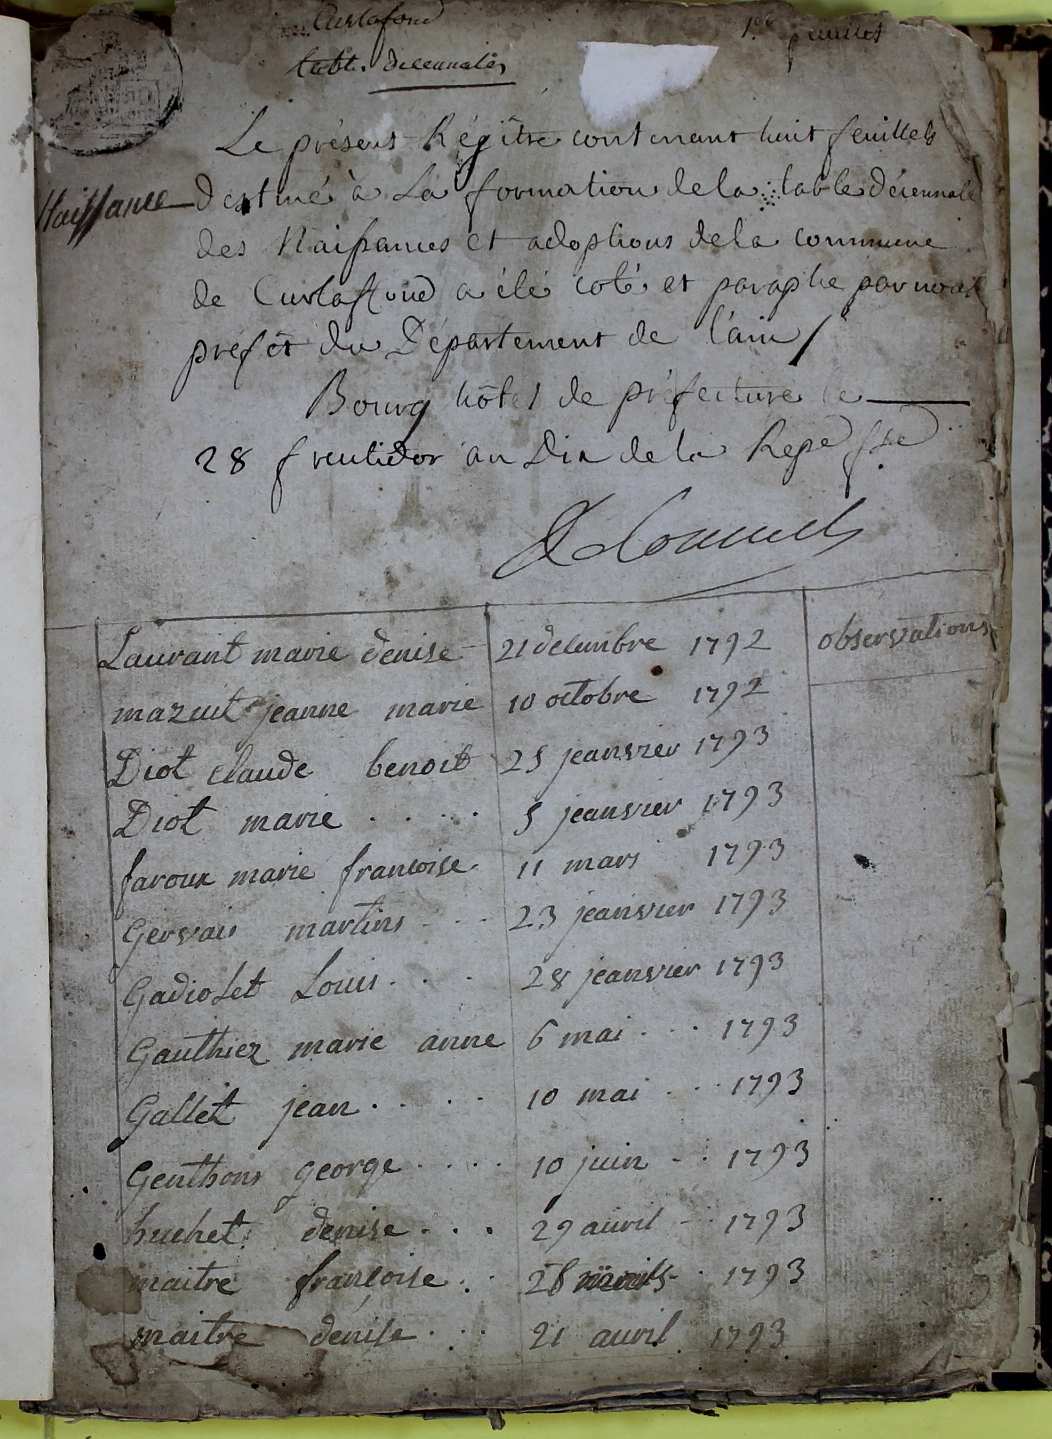 Curtafond
1er feuillet
table décennales
Le présent Régître contenant huit feuillets
Naissance
destiné à La formation de la table décennale
des Naissances et adoptions de la commune
de Curtafond a été coté et paraphé par nous
préfet du Département de l'ain /
Bourg hôtel de préfecture le
28 fructidor an Dix de la Repe fse
Laurant marie denise 21 decembre 1792 observations
mazuit jeanne marie 10 octobre 1792
Diot claude benoit 25 jeanvier 1793
Diot marie . . . . 5 jeanvier 1793
faroux marie francoise . 11 mars 1793
Gervais martins . . . 23 jeanvier 1793
Gadiolet Louis . . . 28 jeanvier 1793
Gauthier marie anne 6 mai . . . 1793
Gallet jean . . . . 10 mai . . 1793
Genthons george . . . . 10 juin - . 1793
huchet denise . . . 29 avril - 1793
maitre françoise . . 28 . 1793
maitre denise . . . 21 avril 1793